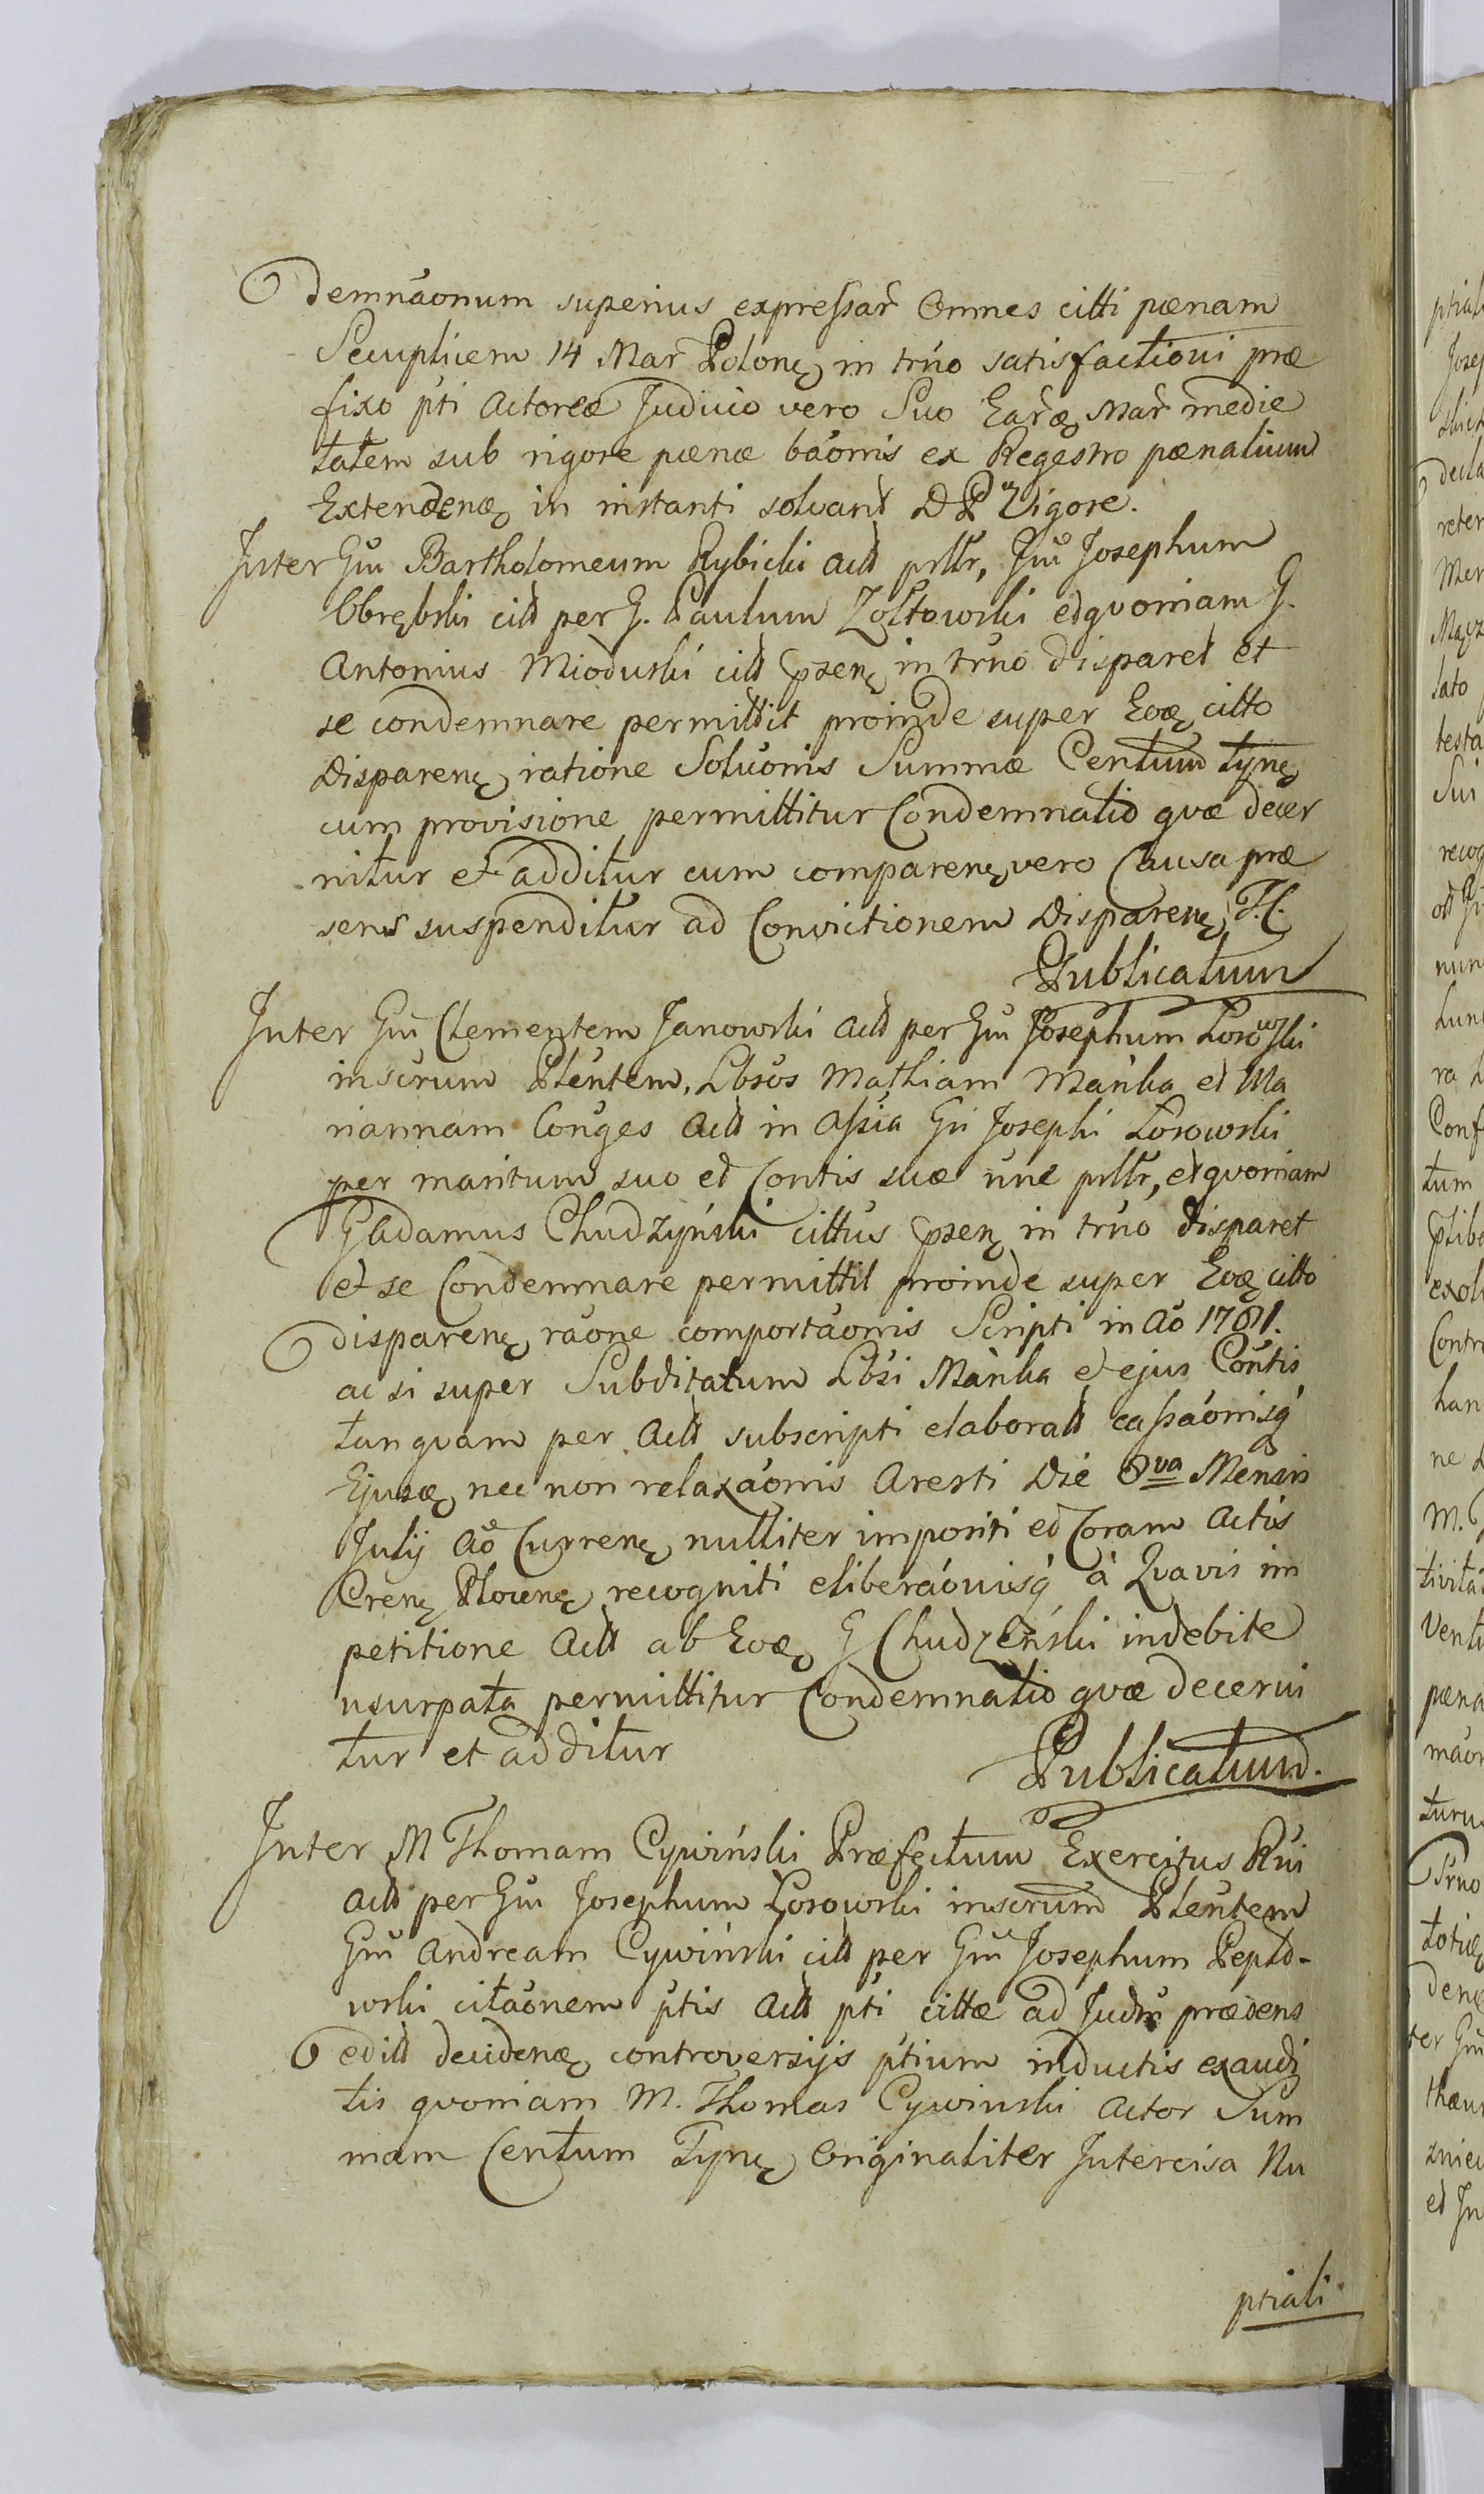 demnãonum superius expressar̃ Omnes citti pœnam
Secuplicem 14 Mar Polonę in trño satisfactioni præ
fixo p̃ti Actoreæ Judicio vero Suo Earæ̨ Mar̃ medie
tatem sub rigore pœnæ bãonis ex Regestro pœnalium
Extendenæ̨ in instanti solvant D P Vigore.
Inter Gm̃ Bartholomeum Rybicki Actt prltr, Gm̃ Josephum
Obrębski citt per G. Paulum Zołtowski et qvoniam G.
Antonius Mioduski citt psenę in trño disparet et
se condemnare permittit proinde super Eoæ̨ citto
Disparenę ratione Soluõnis Summæ Centum Tynę
cum provisione permittitur Condemnatio qvæ decer
nitur et additur cum comparenę vero Causa præ
sens suspenditur ad Convictionem Disparenę T.C.
Publicatum
Inter Gm̃ Clementem Janowski Actt per Gm̃ Josephum Losowski
inscrum Plẽntem, Lbsõs Mathiam Mańka et Ma
riannam Coñges Actt in Assia Gñ Josephi Losowski
per maritum suo et Contis suæ ñne prltr, et qvoniam
G Adamus Chudzyński cittus psenę in trño disparet
et se Condemnare permittit proinde super Eoæ̨ citto
disparenę rãone comportãonis Scripti in Aõ 1781.
ac si super Subditatum Lbsi Mańka et ejus Coñtis
tanqvam per Actt subscripti elaboratt cassãonisq́
Ejusæ̨ nec non relaxãonis Aresti Die 8va Mensis
Julij Aõ Currenę nulliter impositi et Coram Actis
Crenę Plocenę recogniti eliberãonisq́ à Qvavis im
petitione Actt ab Eoæ̨ G Chudzeński indebite
usurpata permittitur Condemnatio qvæ decerni
tur et additur
Publicatum.
Inter M Thomam Cywiński Præfectum Exercitus Rñi
Actt per Gm̃ Josephum Losowski inscrum Plẽntem
Gm̃ Andream Cywiński citt per Gm̃ Josephum Pepło-
wski citãonem p̃tis Actt p̃ti cittæ ad Judm̃ præsens
editt decidenæ̨ controversijs p̃tium inductis exaudi
tis qvoniam M. Thomas Cywinski Actor Sum
mam Centum Tynę Originaliter Intercisa Nu
ptiali